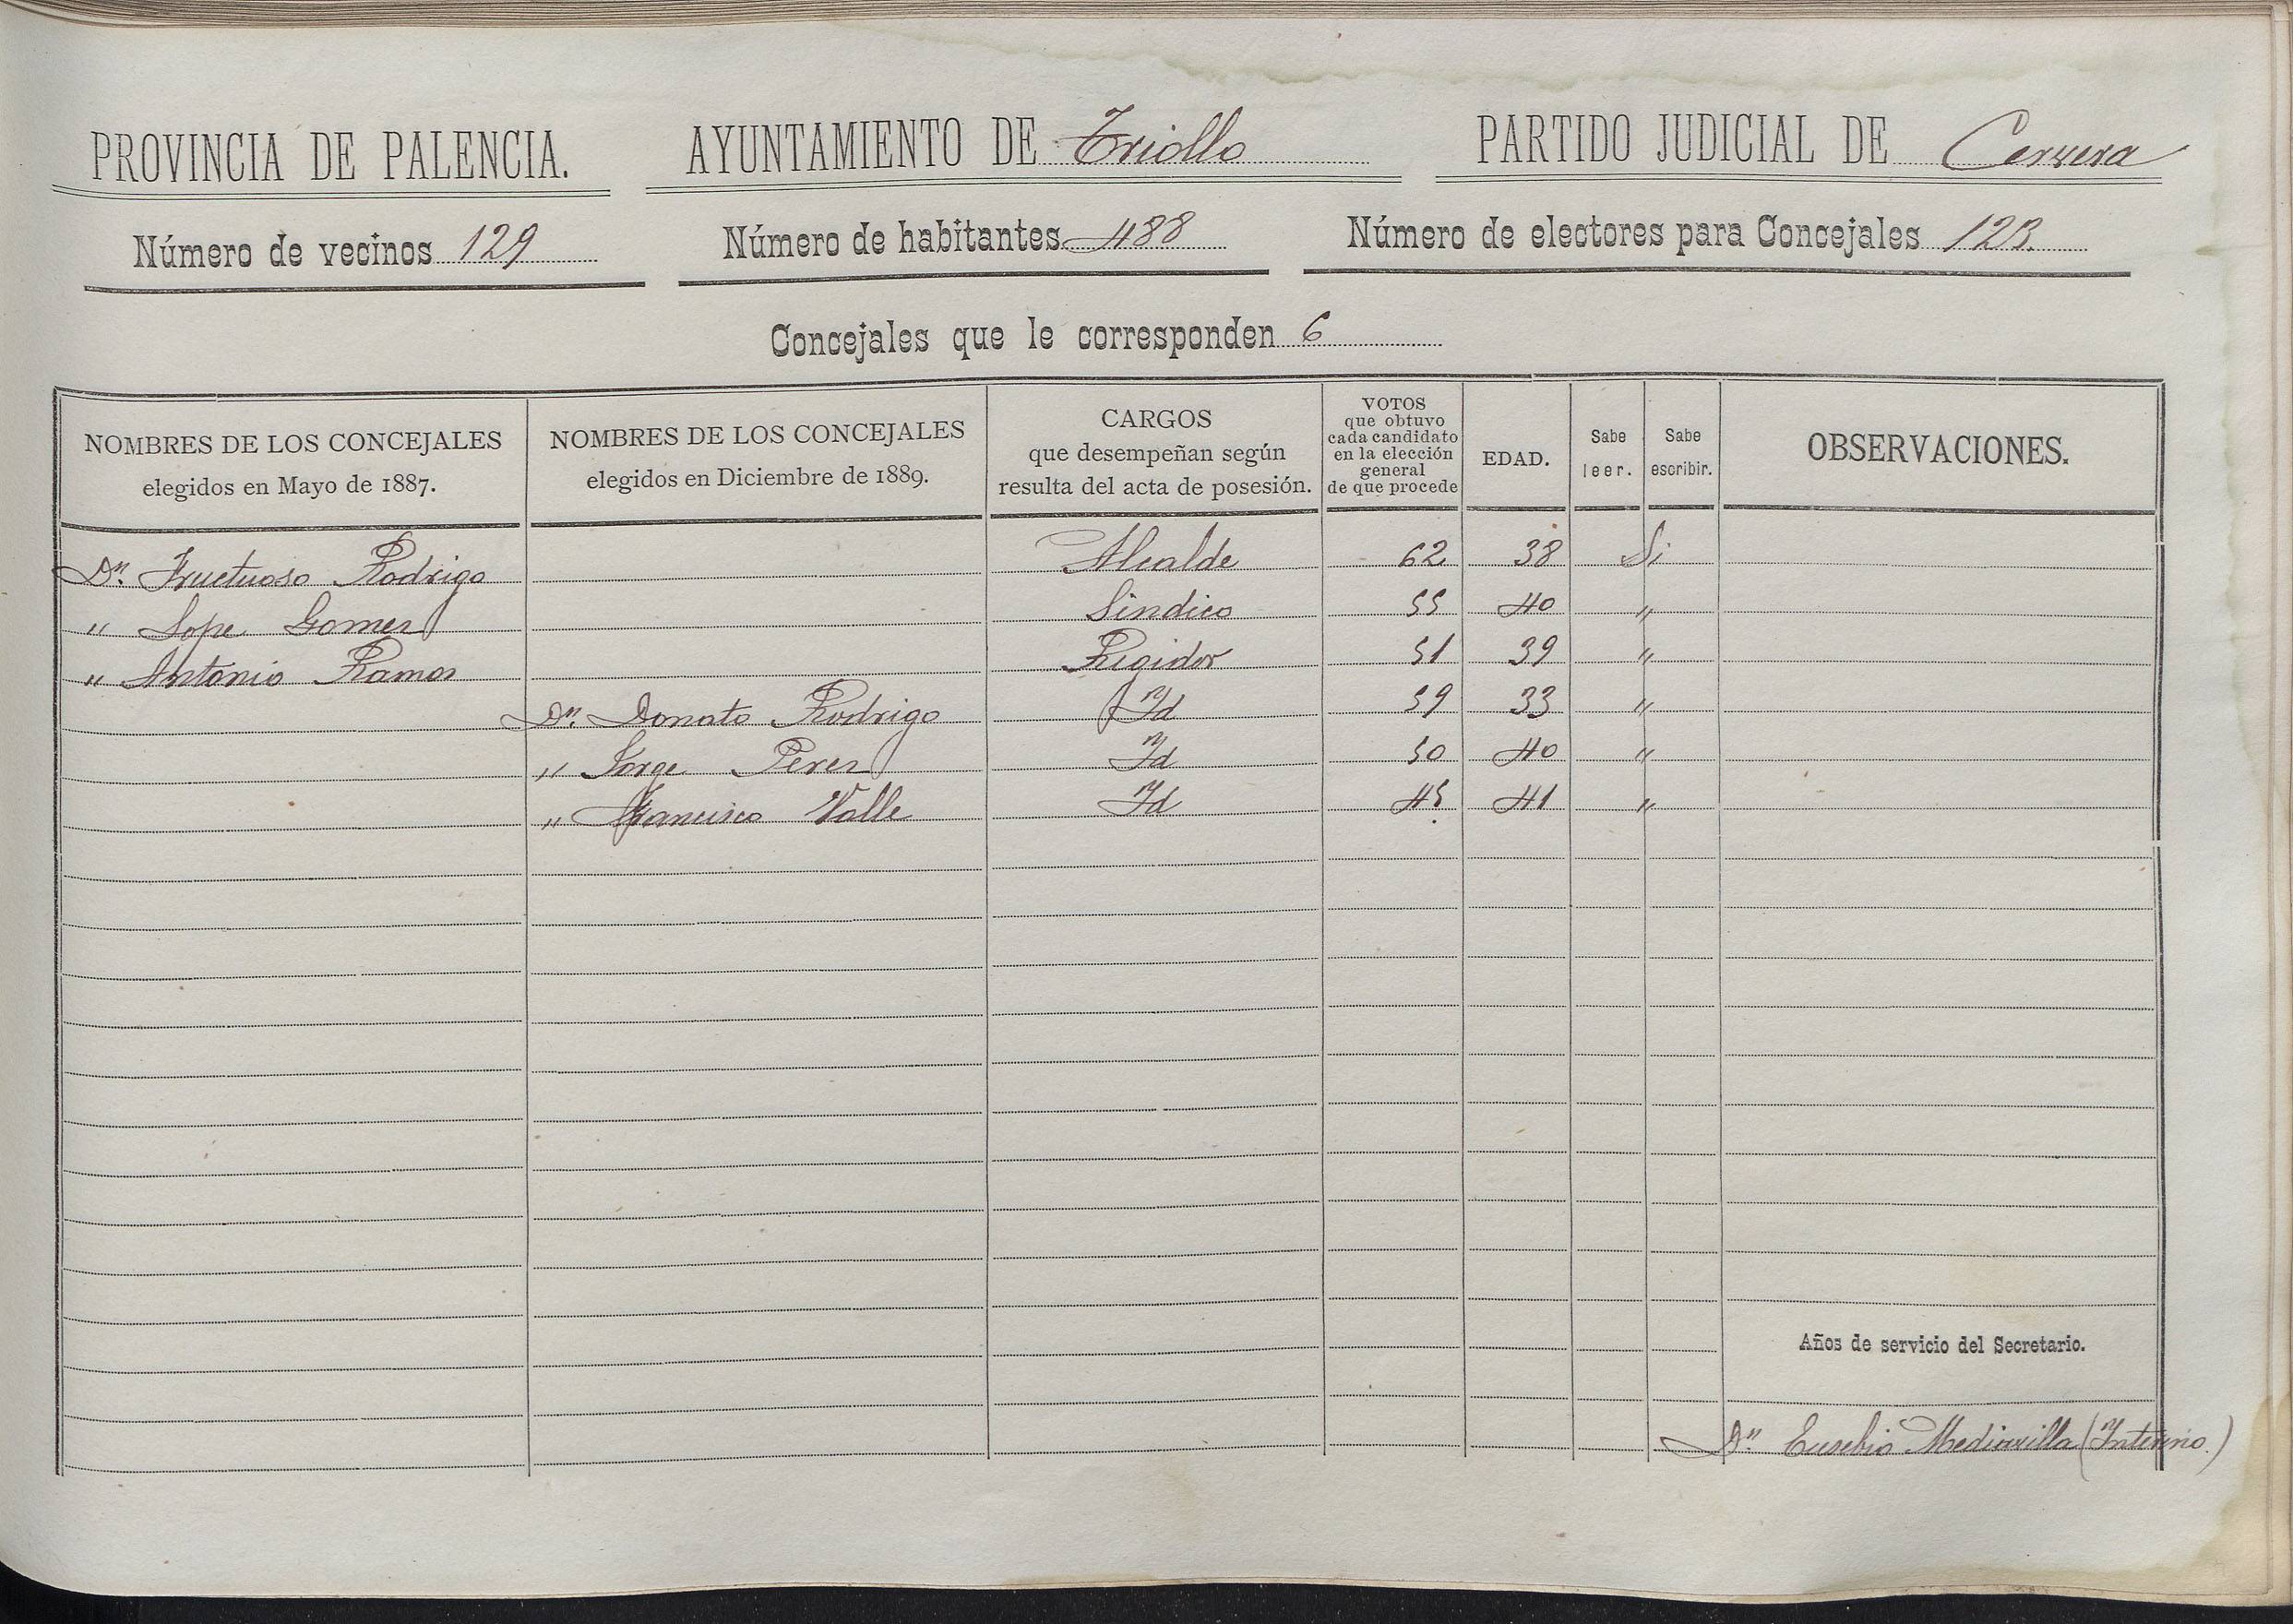 PROVINCIA DE PALENCIA. AYUNTAMIENTO DE Triollo PARTIDO JUDICIAL DE Cervera
Número de vecinos 129 Número de habitantes 488 Número de electores para Concejales 123.
Concejales que le corresponden 6
NOMBRES DE LOS CONCEJALES elegidos en Mayo de 1887. NOMBRES DE LOS CONCEJALES elegidos en Diciembre de 1889. CARGOS que desempeñan según resulta del acta de posesión. VOTOS que obtuvo cada candidato en la elección general de que procede EDAD. Sabe leer. Sabe escribir. OBSERVACIONES.
Dn. Fructuoso Rodrigo Alcalde 62 38 Si
" Lope Gomez Sindico 55 40 "
" Antonio Ramos Regidor 51 39 "
Dn. Donato Rodrigo Id 59 33 "
" Jorge Perez Id 50 40 "
" Francisco Valle Id 45 41 "
Años de servicio del Secretario.
Dn Eusebio Mediavilla (Interino.)